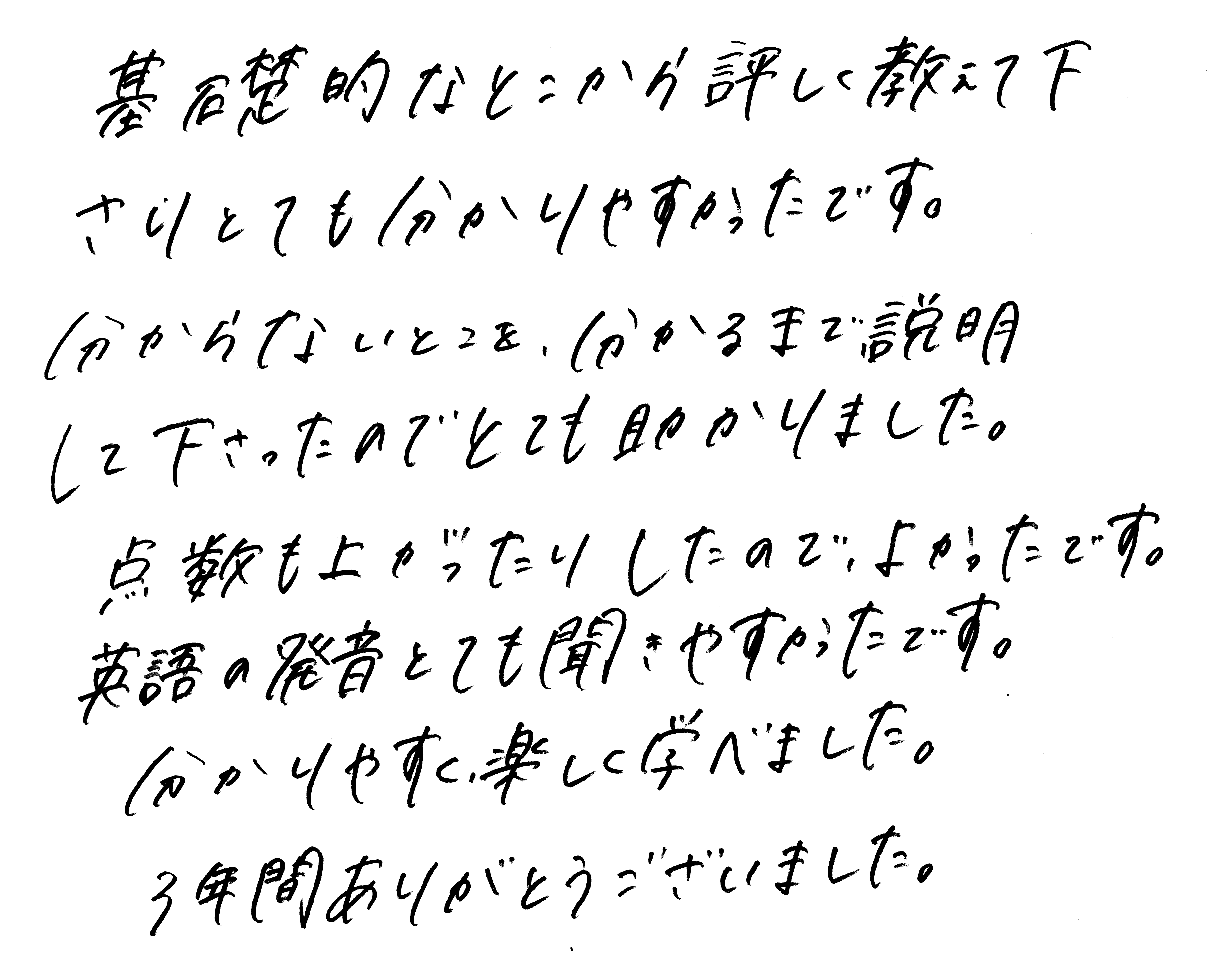 基礎的なとこから評しく教えて下
さりとても分かりやすかったです。
分からないとこを、分かるまで、説明
して下さったのでとても助かりました。
点数も上がったりしたので、よかったです。
英語の発音とても聞きやすかったです。
分かりやすく、楽しく学べました。
3年間ありがとうございました。